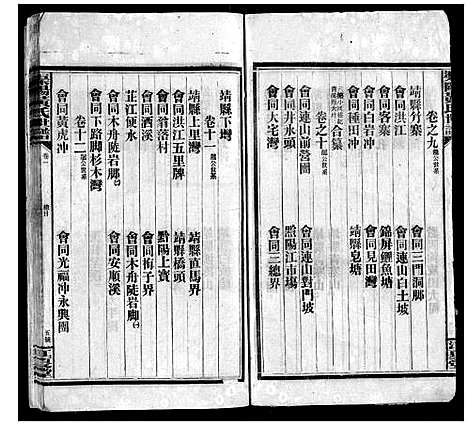 卷之九 龍公世系
靖縣竹寨 會同三門洞腳
會同洪江 會同連山白土坡
會同客寨 錦屏鯉魚塘
會同白岩冲 會同見田灣
會同種田冲 靖縣皂塘
卷之十 龍公世系
合纂
會同連山前營團 會同連山對門坡
會同井水頭 黔陽江市塲
會同大宅灣 會同三總界
靖縣下灣
卷十一 龍公世系
靖縣上里灣 靖縣直馬界
會同洪江五里牌 靖縣橋頭
會同翁落村 黔陽上寶
會同酒溪 會同梅子界
芷江便水 會同木舟陡岩腳㈠
會同木舟陡岩腳㈡ 會同安順溪
會同下路腳杉木灣
卷十二 龍公世系
會同黃虎冲 會同光福冲永興團
卷一 總目 五號